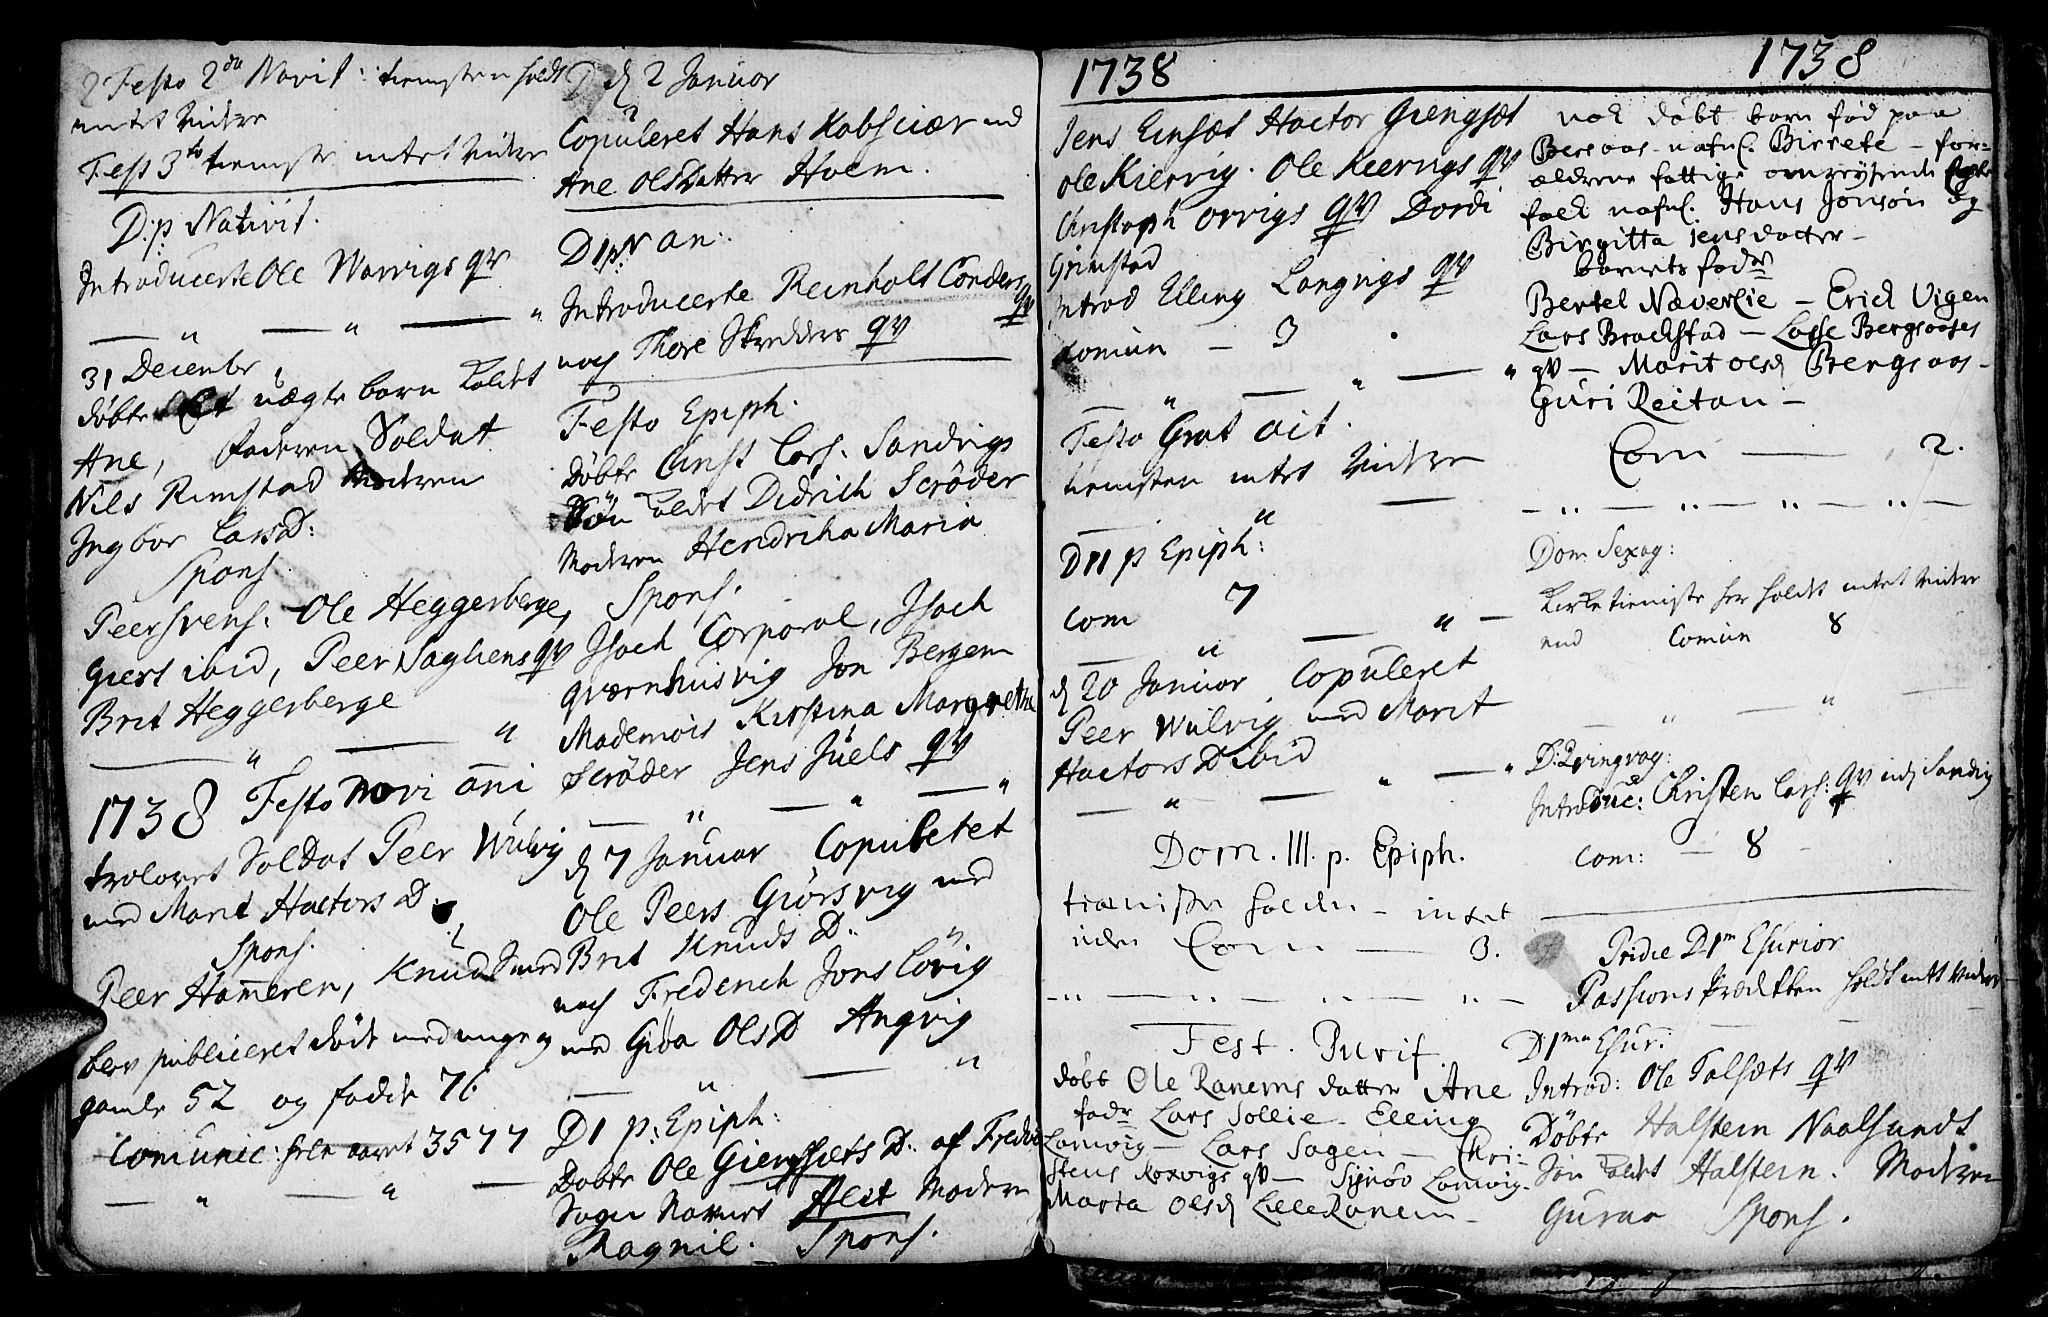 2 Festo 2da Nativit: tienisten holdt
intet videre
Fest 3tia tieniste intet videre
D:p. Nativit.
Introducerte Ole Warvigs qv
31 December
døbte Et uægte barn kaldet
Ane, faderen Soldat
Nils Rimstad Moderen
Ingbor LarsD:
Spons.
Peer Svens: Ole Heggerberge,
Giert ibid, Peer Sagliens qv
Brit Heggerberge
1738 Festo Novi Ani
trolovet Soldat Peer Wulvig
med Marit Hactors D.
Spons.
Peer Hameren, Knud Smed
blev publiceret døde med unge og
gamle 52 og fødde 76
Comunic: hele aaret 3577
D 2 Januar
Copuleret Hans Kobsciær md
Ane Olsdatter Hoem.
D1p N an:
Introducerte Reinholt Conders qv
noch Thore Skredders qv
Festo Epiph.
Døbte Christ Lars: Sandvigs
Søn kaldet Didrich Scrøder
Moderen Hendricha Maria
Spons.
Isach Corporal, Isach
Qværnhusvig Jon Bergem
Mademois Kirstina Margrethe
Scrøder Jens Juels qv
d 7 Januar Copuleret
Ole Peers Giørsvig med
Brit Knuds D.
noch Frederich Jons Løvig
md Giøa OlsD Angvig
D1 p: Epiph:
Døbte Ole Giengsets D. af Fredv
Sogn Navnet Alet Moder
Ragnil. Spons.
1738
Jens Einsæt Hactor Giengsæt
Ole Kiervig. Ole Kiervigs qv
Christoph Orvigs qv Dordi
Grimstad
Introd Elling Langvigs qv
Comun — 3
Festo Grat act.
tienisten intet videre
D II p Epiph:
Com 7
d 20 Januar Copuleret
Peer Wulvig med Marit
Hactors D ibid
Dom. III. p. Epiph.
tieniste holden — intet
uden Com — 3.
Fest. Purif.
døbt Ole Ranems datter Ane
fadr Lars Sollie — Elling
Lomvig — Lars Sagen — Chri:
stens Roxvigs qv — Synøv Lomvig
Marta Olsd LilleRanem —
1738
nok døbt barn fød paa
Bersaas — nafnl. Birrete — for=
ældrene fattige omreysende Egte
folk nafnl. Hans Jonsøn og
Birgitta Jensdatter —
barnets fadr
Bertel Næverlie — Erick Vigen
Lars Brackstad — Lasse Bergsaases
qv — Marit olsd Bergsaas —
Guri Reitan —
Com — 2.
Dom Sexag:
Kirketieniste her holdt intet videre
end Comun 8
D: Qvinqvag:
Introduc: Christen Lars: qv ud Sandvig
Com: — 8
Pridie D1m Esurior
Passions Prædiken holdt intet videre
D1ma Esur:
Introd: Ole Talsæts qv
Døbte Halsten Naalsunds
Søn kaldt Halsten. Moderen
Guraa Spons.